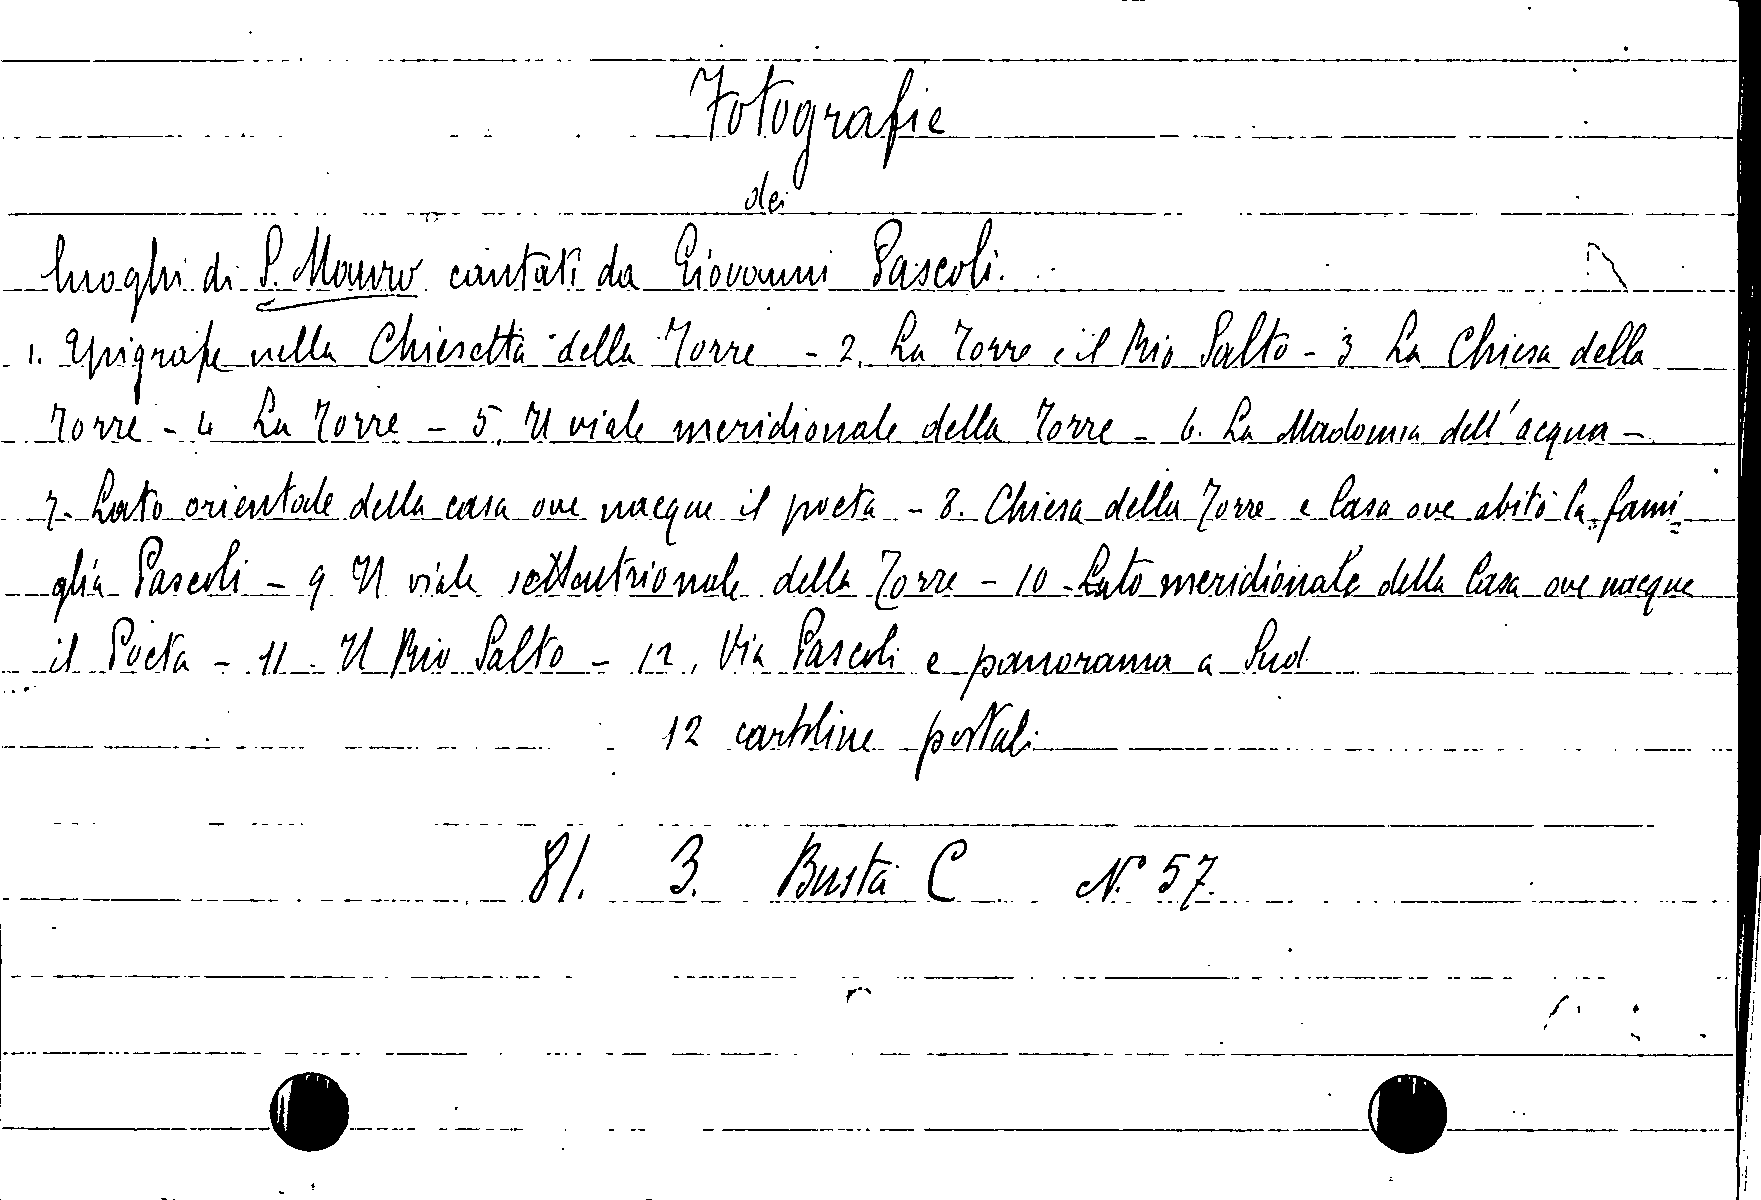 Fotografie
dei
luoghi di S. Mauro cantati da Giovanni Pascoli.
1. Epigrafe nella Chiesetta della Torre - 2. La Torre e il Rio Salto - 3 La Chiesa della
Torre - 4 La Torre - 5. Il viale meridionale della Torre - 6. La Madonna dell'acqua -
7. Lato orientale della casa ove nacque il poeta - 8. Chiesa della Torre e Casa ove abitò la fami=
glia Pascoli - 9 Il viale settentrionale della Torre - 10 - Lato meridionale della Casa ove nacque
il Poeta - 11. Il Rio Salto - 12. Via Pascoli e panorama a Sud
12 cartoline postali
81. 3. Busta C N.º 57.